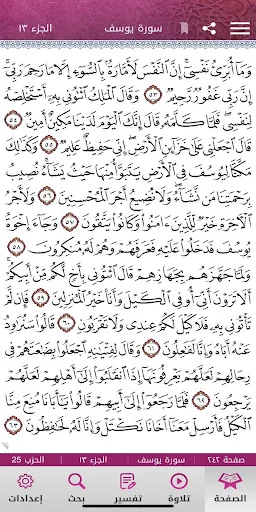 سورة يوسف الجزء ١٣
وَمَا أُبَرِّئُ نَفْسِي إِنَّ النَّفْسَ لَأَمَّارَةٌ بِالسُّوءِ إِلَّا مَا رَحِمَ رَبِّي
إِنَّ رَبِّي غَفُورٌ رَّحِيمٌ ٥٣ وَقَالَ الْمَلِكُ ائْتُونِي بِهِ أَسْتَخْلِصْهُ
لِنَفْسِي فَلَمَّا كَلَّمَهُ قَالَ إِنَّكَ الْيَوْمَ لَدَيْنَا مَكِينٌ أَمِينٌ ٥٤
قَالَ اجْعَلْنِي عَلَى خَزَائِنِ الْأَرْضِ إِنِّي حَفِيظٌ عَلِيمٌ ٥٥ وَكَذَلِكَ
مَكَّنَّا لِيُوسُفَ فِي الْأَرْضِ يَتَبَوَّأُ مِنْهَا حَيْثُ يَشَاءُ نُصِيبُ
بِرَحْمَتِنَا مَن نَّشَاءُ وَلَا نُضِيعُ أَجْرَ الْمُحْسِنِينَ ٥٦ وَلَأَجْرُ
الْآخِرَةِ خَيْرٌ لِّلَّذِينَ آمَنُوا وَكَانُوا يَتَّقُونَ ٥٧ وَجَاءَ إِخْوَةُ
يُوسُفَ فَدَخَلُوا عَلَيْهِ فَعَرَفَهُمْ وَهُمْ لَهُ مُنكِرُونَ ٥٨
وَلَمَّا جَهَّزَهُم بِجَهَازِهِمْ قَالَ ائْتُونِي بِأَخٍ لَّكُم مِّنْ أَبِيكُمْ
أَلَا تَرَوْنَ أَنِّي أُوفِي الْكَيْلَ وَأَنَا خَيْرُ الْمُنزِلِينَ ٥٩ فَإِن لَّمْ
تَأْتُونِي بِهِ فَلَا كَيْلَ لَكُمْ عِندِي وَلَا تَقْرَبُونِ ٦٠ قَالُوا سَنُرَاوِدُ
عَنْهُ أَبَاهُ وَإِنَّا لَفَاعِلُونَ ٦١ وَقَالَ لِفِتْيَانِهِ اجْعَلُوا بِضَاعَتَهُمْ فِي
رِحَالِهِمْ لَعَلَّهُمْ يَعْرِفُونَهَا إِذَا انقَلَبُوا إِلَى أَهْلِهِمْ لَعَلَّهُمْ
يَرْجِعُونَ ٦٢ فَلَمَّا رَجَعُوا إِلَى أَبِيهِمْ قَالُوا يَا أَبَانَا مُنِعَ مِنَّا
الْكَيْلُ فَأَرْسِلْ مَعَنَا أَخَانَا نَكْتَلْ وَإِنَّا لَهُ لَحَافِظُونَ ٦٣
صفحة ٢٤٢ سورة يوسف الجزء ١٣ الحزب 25
الصفحة تلاوة تفسير بحث إعدادات